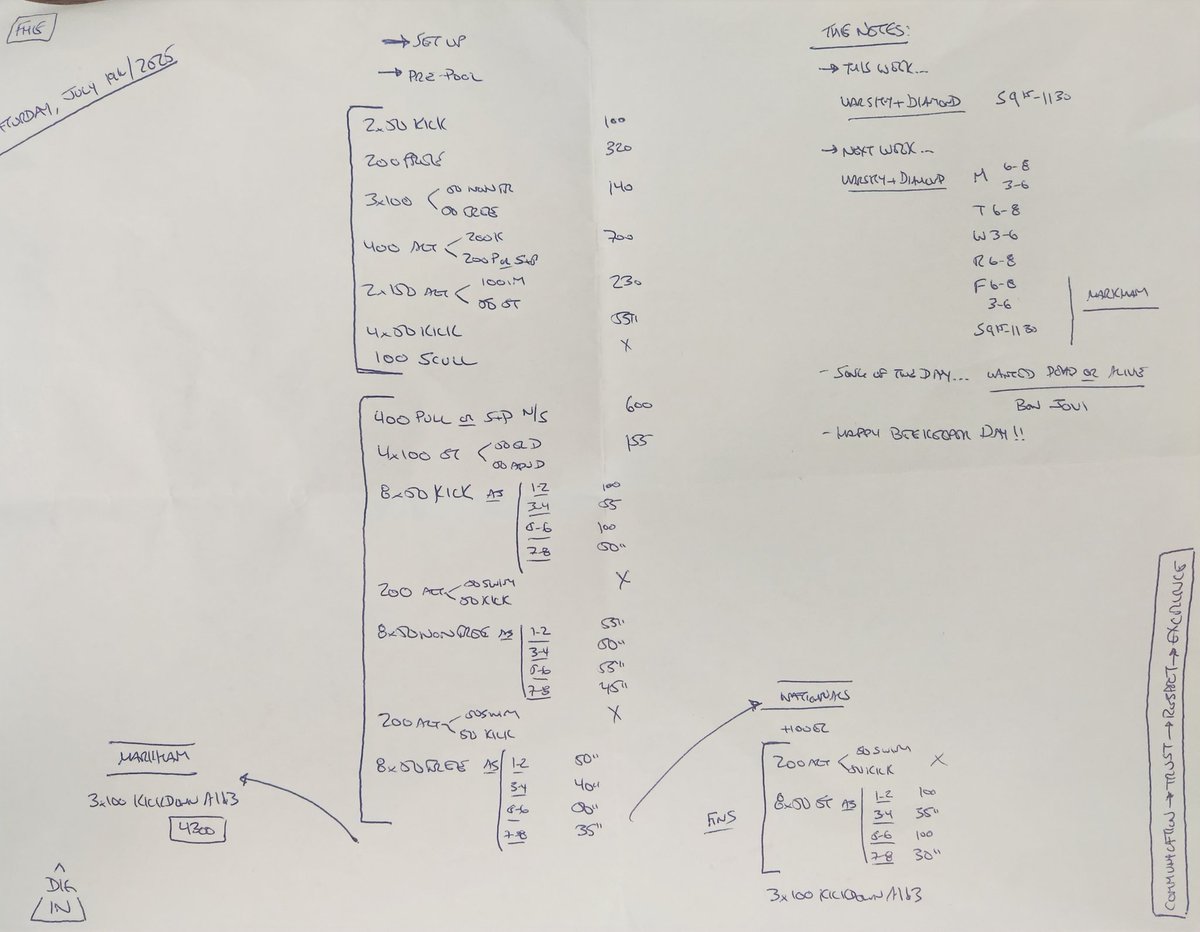 FHE
SATURDAY, JULY 19th/2025
→ SET UP
→ PRE-POOL
2x50 KICK 100
200 FREE 320
3x100 < 50 NONFR 140
50 FREE
400 ALT < 200K 700
200 P or S+P
2x150 ALT < 100 IM 230
50 ST
4x50 KICK 55"
100 SCULL X
400 PULL or S+P N/S 600
4x100 ST 155
8x50 KICK AS 1-2 100
3-4 55
5-6 100
7-8 50"
200 ALT < 50 SWIM X
50 KICK
8x50 NONFREE AS 1-2 55"
3-4 50"
5-6 55"
7-8 45"
200 ALT < 50 SWIM X
50 KICK
8x50 FREE AS 1-2 50"
3-4 40"
5-6 50"
7-8 35"
MARKHAM
3x100 KICKDOWN A1b3
4300
DIG
IN
THE NOTES:
→ THIS WEEK...
VARSITY + DIAMOND S 915-1130
→ NEXT WEEK...
VARSITY + DIAMOND M 6-8
3-6
T 6-8
W 3-6
R 6-8
F 6-8
3-6
S 915-1130
MARKHAM
- SONG OF THE DAY... WANTED DEAD OR ALIVE
BON JOVI
- HAPPY DAY!!
NATIONALS
+100 EZ
200 ALT < 50 SWIM X
50 KICK
FINS
8x50 ST AS 1-2 100
3-4 35"
5-6 100
7-8 30"
3x100 KICKDOWN A1b3
COMMUNICATION → TRUST → RESPECT → EXCELLENCE